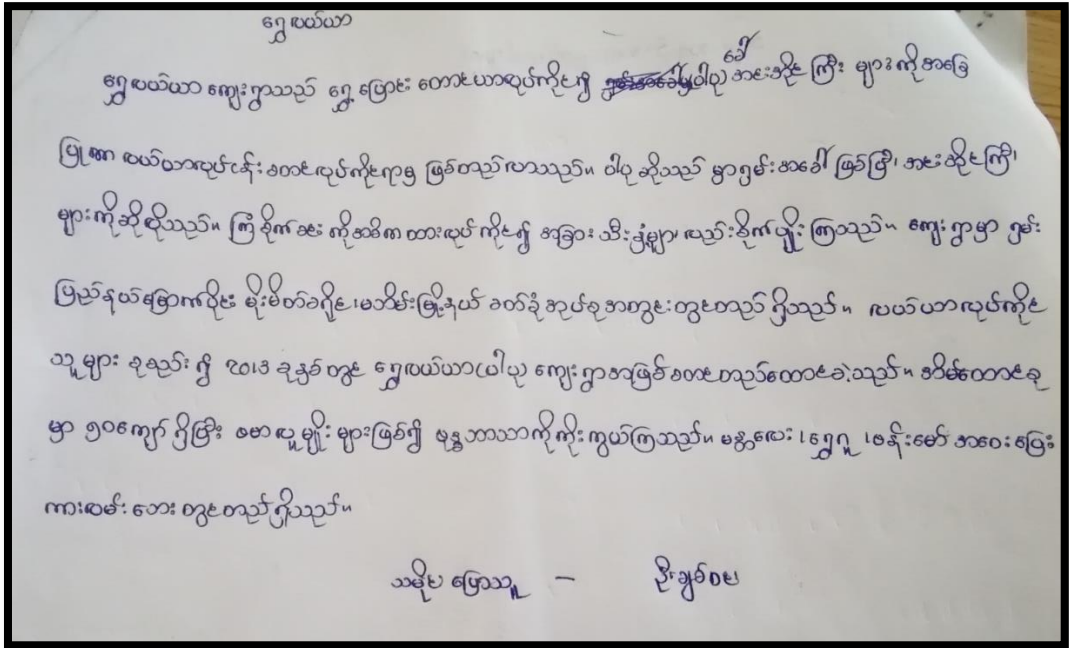 ရွှေလယ်ယာ
ရွှေလယ်ယာ ကျေးရွာသည် ရွှေ့ပြောင်း တောင်ယာလုပ်ကိုင်၍ ဝါပု ခေါ် အင်းအိုင် ကြီး များကိုအခြေ
ပြုကာ လယ်ယာလုပ်ငန်း စတင်လုပ်ကိုင်ရာမှ ဖြစ်တည်လာသည်။ ဝါပု ဆိုသည် မှာရှမ်းအခေါ် ဖြစ်ပြီး အင်းအိုင်ကြီး
များကိုဆိုလိုသည်။ ကြံစိုက်ခင်း ကိုအဓိကထားလုပ် ကိုင်၍ အခြား သီးနှံများ လည်းစိုက်ပျိုး ကြသည်။ ကျေးရွာမှာ ရှမ်း
ပြည်နယ်မြောက်ပိုင်း မိုးမိတ်ခရိုင်၊ မဘိမ်းမြို့နယ် ခတ်ခုံအုပ်စုအတွင်းတွင်တည် ရှိသည်။ လယ်ယာလုပ်ကိုင်
သူများ စုစည်း၍ ၂၀၁၃ ခုနှစ် တွင် ရွှေလယ်ယာ(ဝါပု) ကျေးရွာအဖြစ်စတင်တည်ထောင်ခဲ့သည်။ အိမ်ထောင်စု
မှာ ၅၀ကျော် ရှိပြီး ဗမာလူမျိုး များဖြစ်၍ ဗုဒ္ဓဘာသာကိုကိုးကွယ်ကြသည်။ မန္တလေး၊ ရွှေကူ၊ ဗန်းမော် အဝေးပြေး
ကားလမ်း ဘေးတွင်တည်ရှိသည်။
သမိုင်း ပြောသူ – ဦးချစ်ဝေ